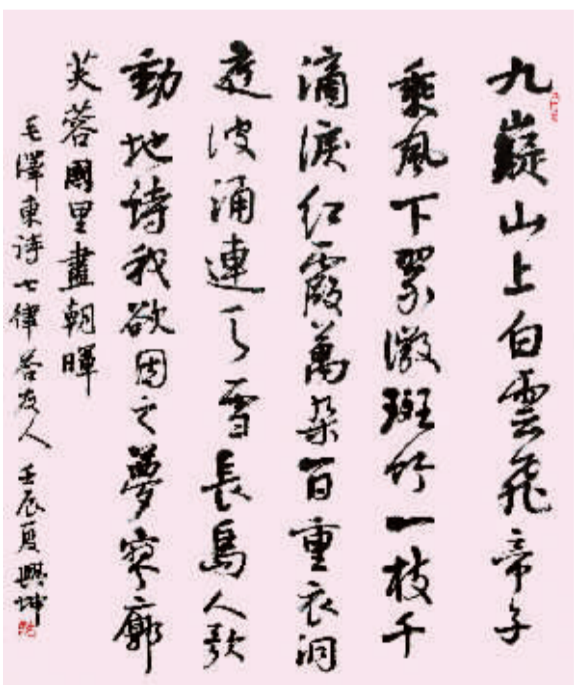 九嶷山上白雲飛帝子
乘風下翠微斑竹一枝千
滴淚红霞萬朵百重衣洞
庭波涌連天雪長島人歌
動地诗我欲因之夢寥廓
芙蓉國里盡朝暉
毛澤東诗七律答友人 壬辰夏興坤